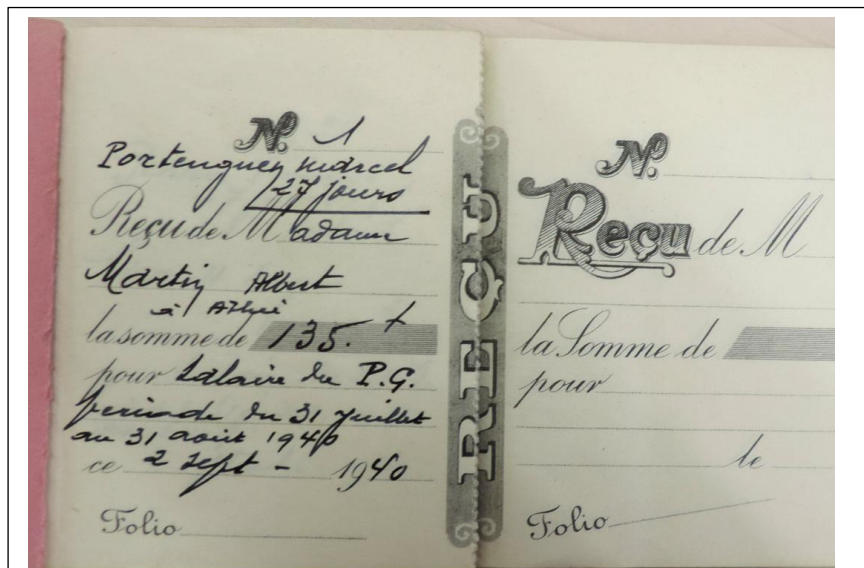 N. 1
Portenguen Marcel
27 jours
Reçu de Madame
Martin Albert
à Athée
la somme de 135. f
pour Salaire du P.G.
période du 31 Juillet
au 31 août 1940
ce 2 Sept - 1940
Folio
REÇU
N.
Reçu de M
la Somme de
pour
le
Folio